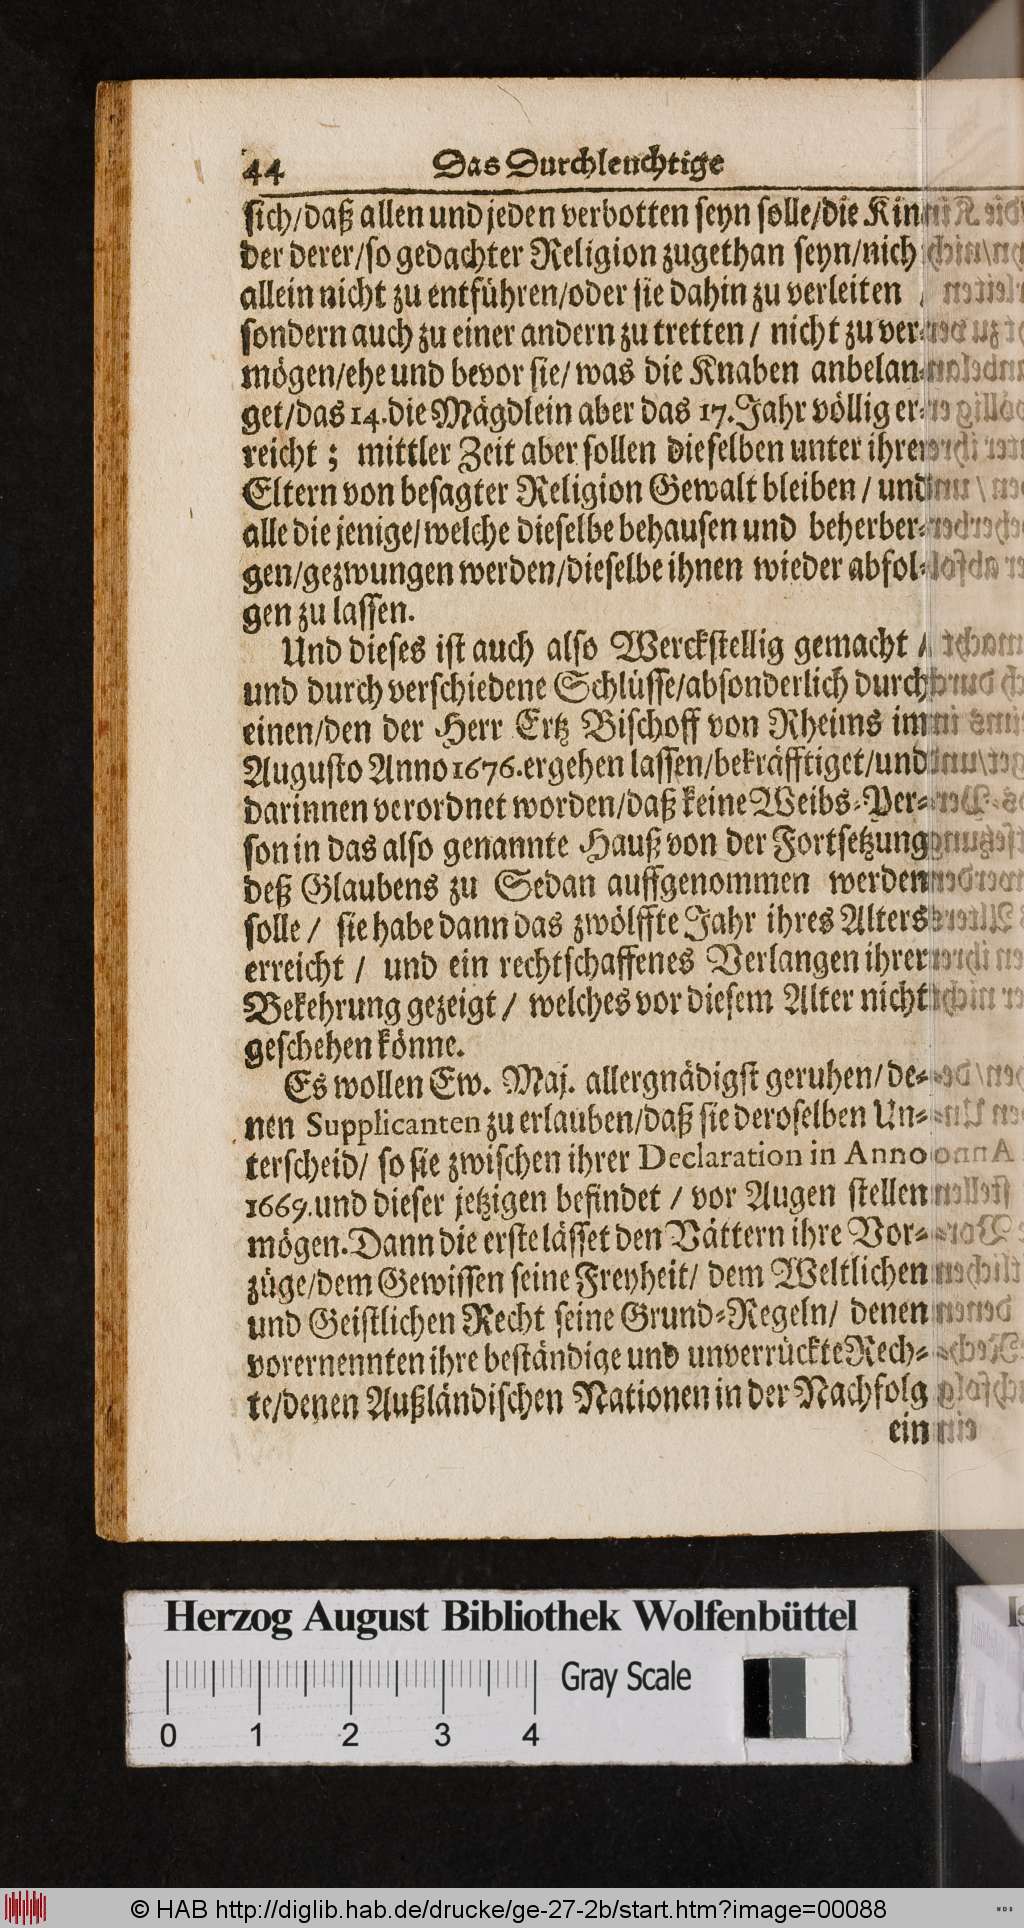 44 Das Durchlenchtige
sich/daß allen und jeden verbotten seyn solle/die Kin
der derer/so gedachter Religion zugethan seyn/nich
allein nicht zu entführen/oder sie dahin zu verleiten /
sondern auch zu einer andern zu tretten / nicht zu ver-
mögen/ehe und bevor sie/ was die Knaben anbelan-
get/das 14.die Mägdlein aber das 17.Jahr völlig er-
reicht ; mittler Zeit aber sollen dieselben unter ihre
Eltern von besagter Religion Gewalt bleiben / und
alle die jenige/welche dieselbe behausen und beherber-
gen/gezwungen werden/dieselbe ihnen wieder abfol-
gen zu lassen.
Und dieses ist auch also Werckstellig gemacht /
und durch verschiedene Schlüsse/absonderlich durch
einen/den der Herr Ertz Bischoff von Rheims im
Augusto Anno 1676.ergehen lassen/bekräfftiget/und
darinnen verordnet worden/daß keine Weibs-Per-
son in das also genannte Hauß von der Fortsetzung
deß Glaubens zu Sedan auffgenommen werden
solle / sie habe dann das zwölffte Jahr ihres Alters
erreicht / und ein rechtschaffenes Verlangen ihrer
Bekehrung gezeigt / welches vor diesem Alter nicht
geschehen könne.
Es wollen Ew. Maj. allergnädigst geruhen/ de-
nen Supplicanten zu erlauben/daß sie deroselben Un-
terscheid/ so sie zwischen ihrer Declaration in Anno
1669.und dieser jetzigen befindet / vor Augen stellen
mögen.Dann die erste lässet den Vättern ihre Vor-
züge/dem Gewissen seine Freyheit/ dem Weltlichen
und Geistlichen Recht seine Grund-Regeln/ denen
vorernennten ihre beständige und unverrückte Rech-
te/denen Außländischen Nationen in der Nachfolg
ein
Herzog August Bibliothek Wolfenbüttel
Gray Scale
0 1 2 3 4
© HAB http://diglib.hab.de/drucke/ge-27-2b/start.htm?image=00088